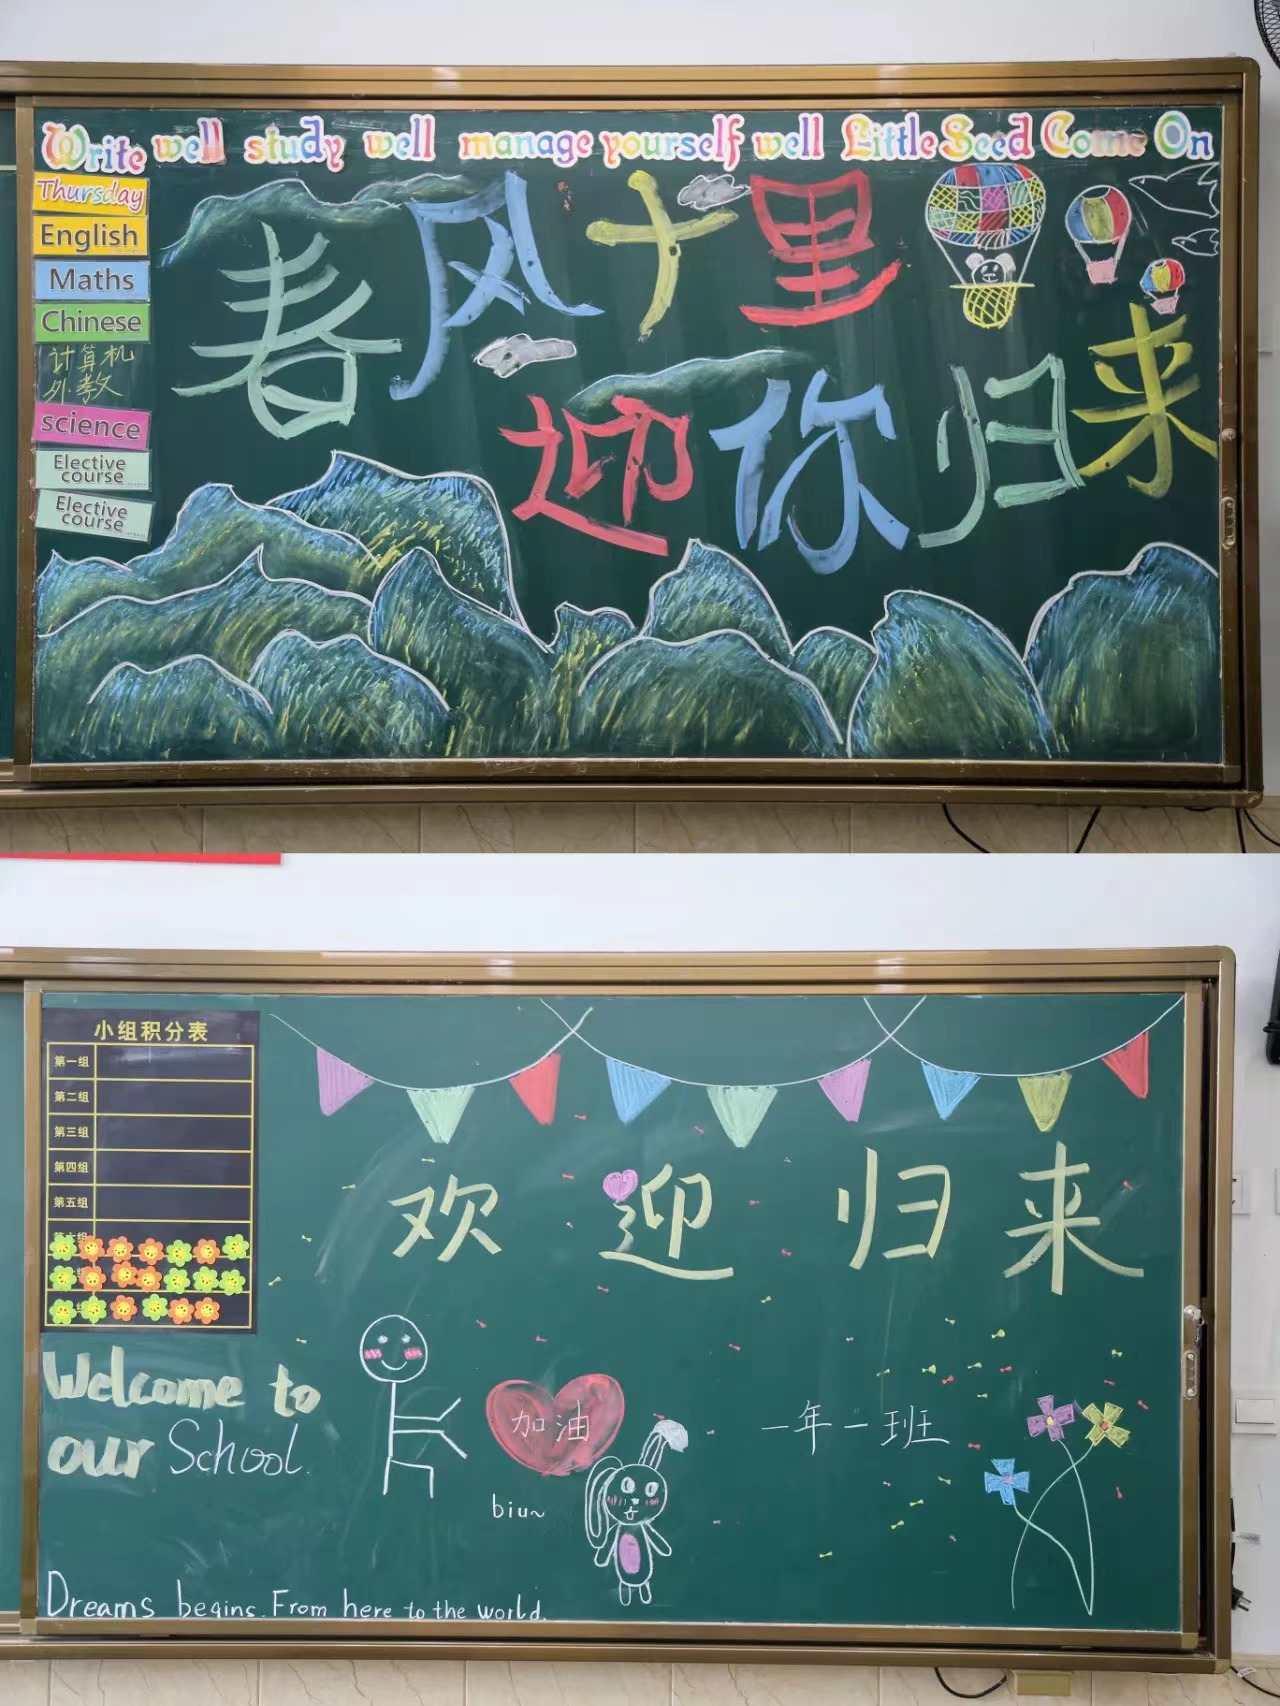 Write well study well manage yourself well Little Seed Come On
Thursday
English
Maths
Chinese
计算机
外教
science
Elective
course
Elective
course
春风十里
迎你归来
小组积分表
第一组
第二组
第三组
第四组
第五组
欢迎归来
Welcome to
our School.
加油
biu~
一年一班
Dreams begins. From here to the world.